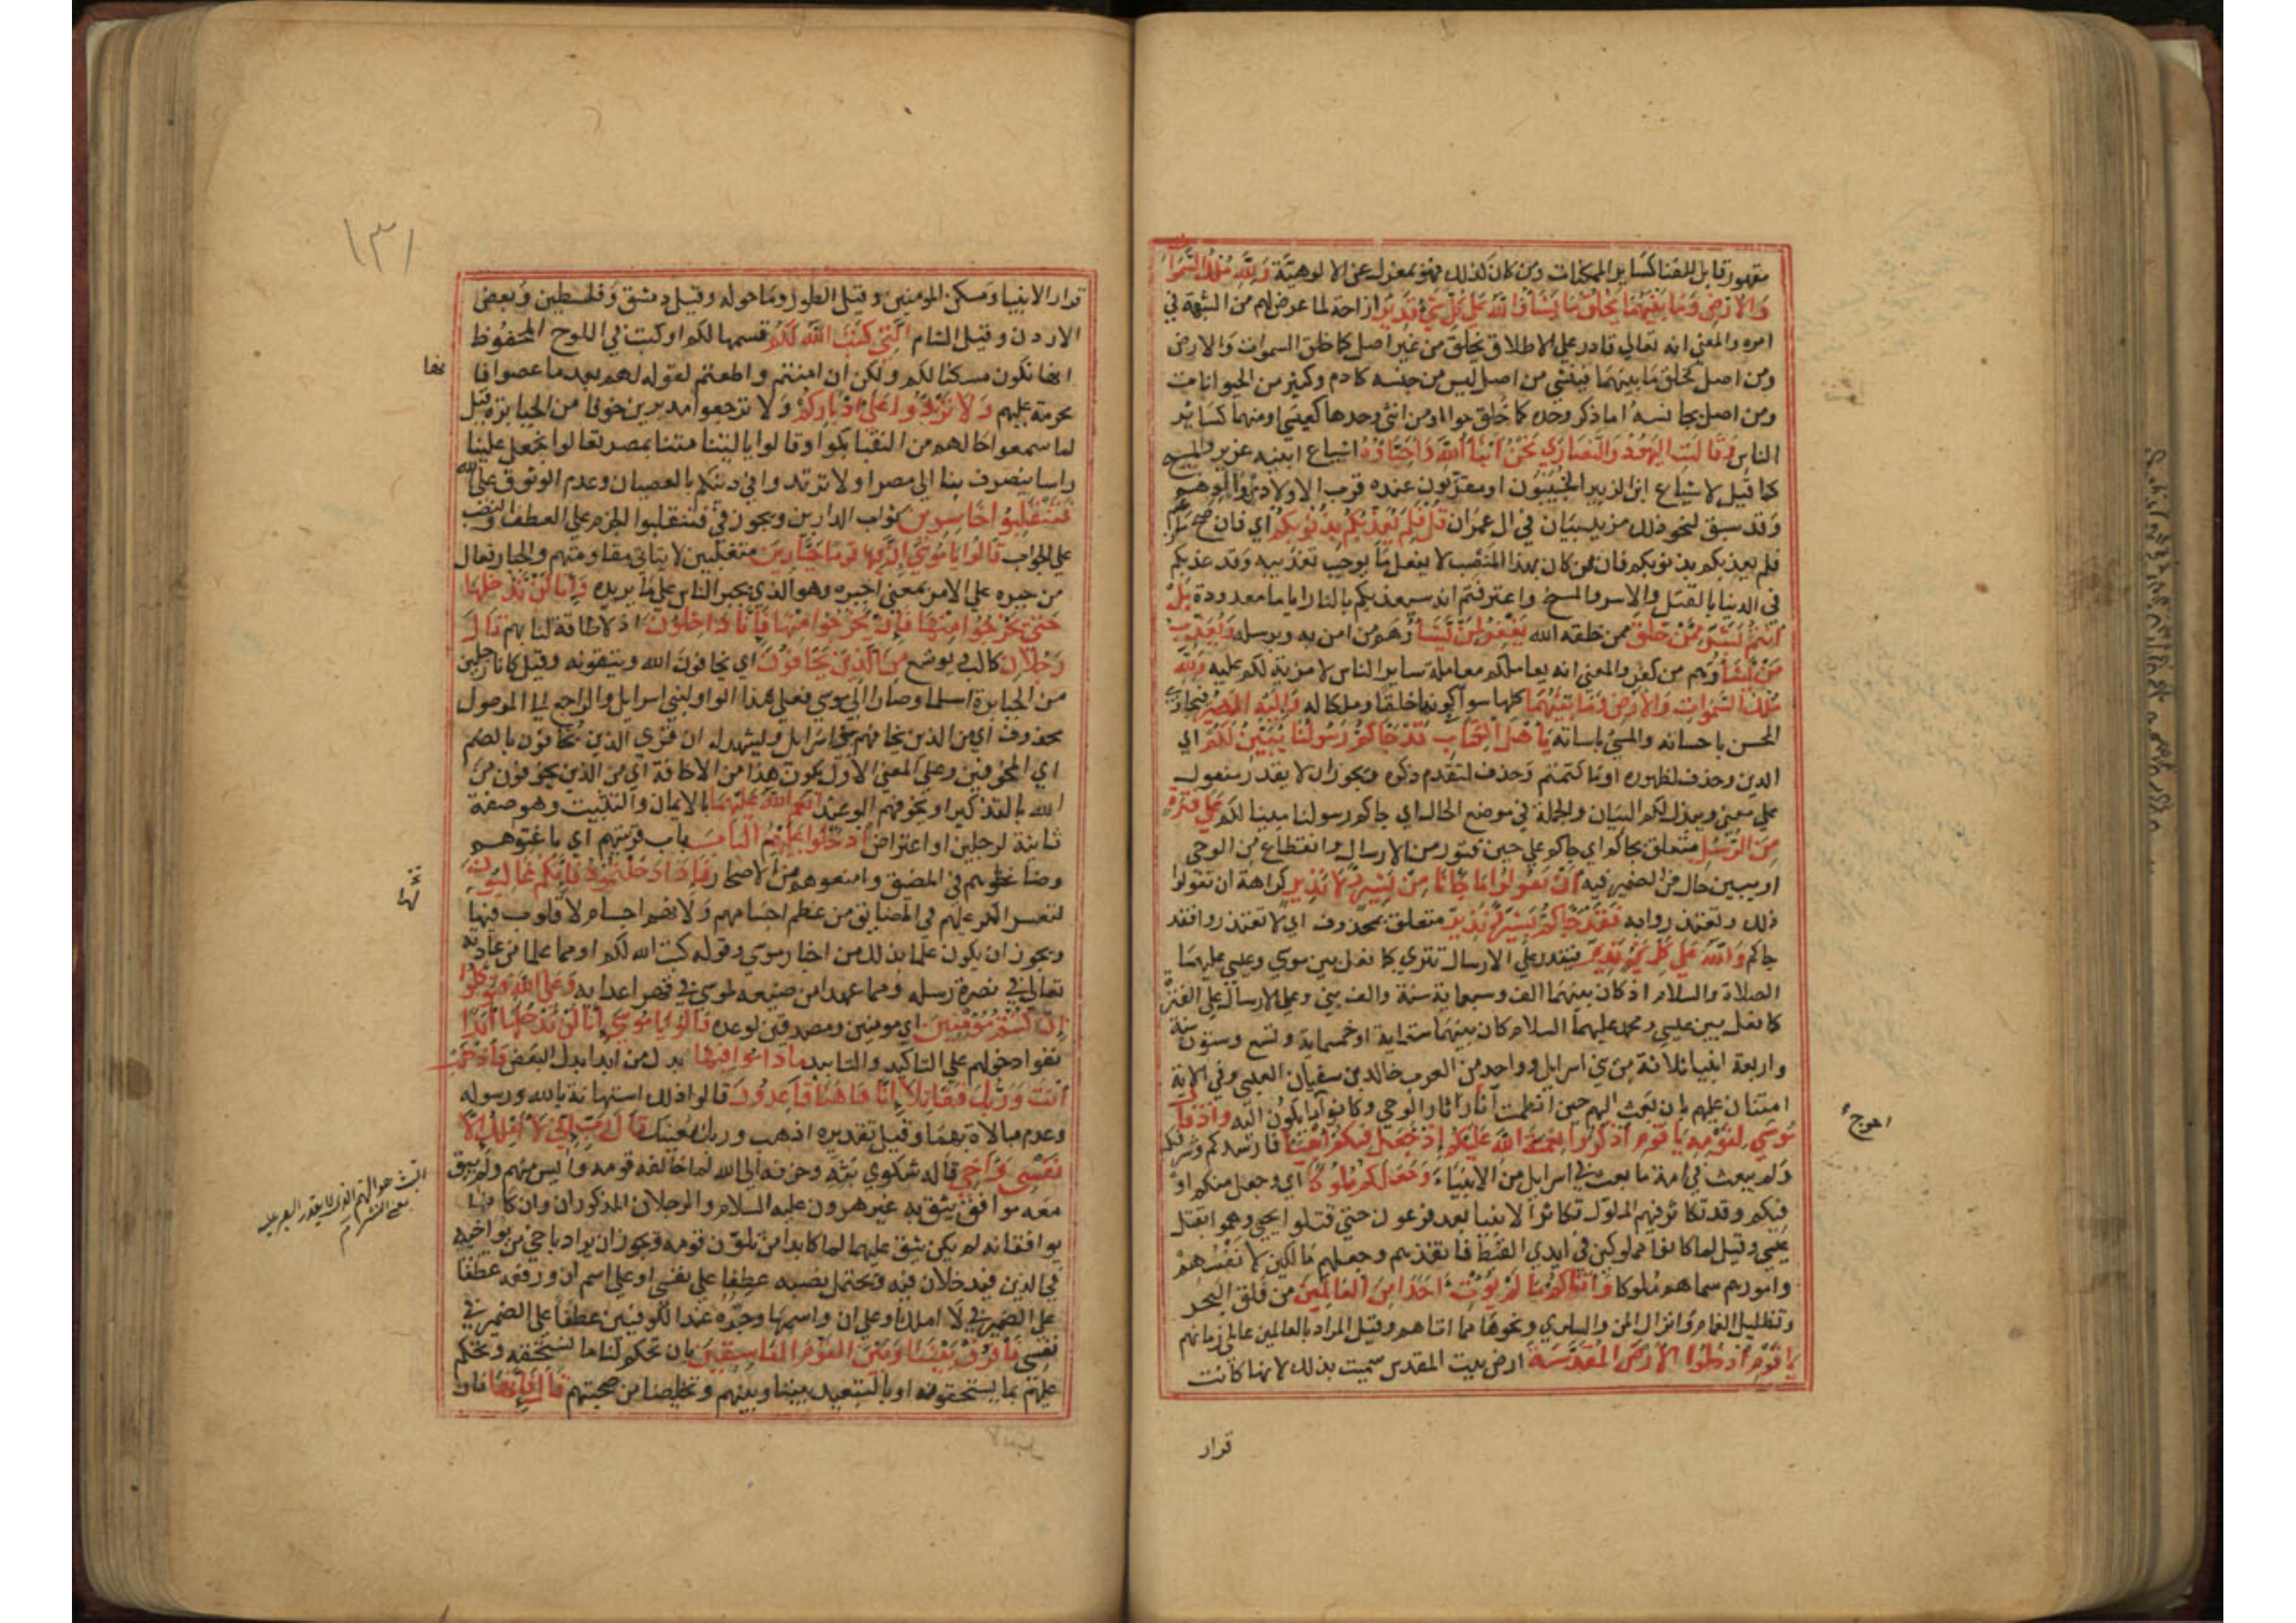 مقهور قابل للفنا كساير الممكنات ومن كان كذلك فهو بمعزل عن الالوهية وَلِلَّهِ مُلْكُ السَّمَوَاتِ
وَالأَرْضِ وَمَا بَيْنَهُمَا يَخْلُقُ مَا يَشَاءُ وَاللَّهُ عَلَى كُلِّ شَيْءٍ قَدِيرٌ ازاحة لما عرض لهم من الشبهة في
امره والمعني انه تعالي قادر علي الاطلاق يخلق من غير اصل كما خلق السموات والارض
ومن اصل كخلق ما بينهما فينشي من اصل ليس من جنسه كادم وكثير من الحيوانات
ومن اصل يجانسه اما ذكر وحده كما خلق حوا او من انثي وحدها كعيسي او منهما كساير
الناس وَقَالَتِ اليَهُودُ وَالنَّصَارَي نَحْنُ أَبْنَاءُ اللَّهِ وَأَحِبَّاؤُهُ اشياع ابنيه عزير والمسيح
كما قيل لاشياع ابن الزبير الخبيبون او مقربون عنده قرب الاولاد من والدهم
وقد سبق لنحو ذلك مزيد بيان في ال عمران قُلْ فَلِمَ يُعَذِّبُكُمْ بِذُنُوبِكُمْ اي فان صح ما زعمتم
فلم يعذبكم بذنوبكم فان من كان بهذا المنصب لا يفعل ما يوجب تعذيبه وقد عذبكم
في الدنيا بالقتل والاسر والمسخ واعترفتم انه سيعذبكم بالنار اياما معدودة بَلْ
أَنْتُمْ بَشَرٌ مِمَّنْ خَلَقَ ممن خلقه الله يَغْفِرُ لِمَنْ يَشَاءُ وهم من امن به وبرسله وَيُعَذِّبُ
مَنْ يَشَاءُ وهم من كفر والمعني انه يعاملكم معاملة ساير الناس لا مزية لكم عليه وَلِلَّهِ
مُلْكُ السَّمَوَاتِ وَالأَرْضِ وَمَا بَيْنَهُمَا كلها سوا كونها خلقا وملكا له وَإِلَيْهِ المَصِيرُ فيجازي
المحسن باحسانه والمسي باساته يَا أَهْلَ الكِتَابِ قَدْ جَاءكُمْ رَسُولُنَا يُبَيِّنُ لَكُمْ اي
الدين وحذف لظهوره او ما كتمتم وحذف لتقدم ذكره ويجوز ان لا يقدر مفعول
علي معني ويبذل لكم البيان والجملة في موضع الحال اي جاكم رسولنا مبينا لكم عَلَى فَتْرَةٍ
مِنَ الرُّسُلِ متعلق بجاكم اي جاكم علي حين فتور من الارسال وانقطاع من الوحي
او يبين حال من الضمير فيه أَنْ تَقُولُوا مَا جَاءنَا مِنْ بَشِيرٍ وَلَا نَذِيرٍ كراهة ان تقولوا
ذلك وتعتذروا به فَقَدْ جَاءكُمْ بَشِيرٌ وَنَذِيرٌ متعلق بمحذوف اي لا تعتذروا فقد
جاكم وَاللَّهُ عَلَى كُلِّ شَيْءٍ قَدِيرٌ فيقدر علي الارسال تتري كما فعل بين موسي وعيسي عليهما
الصلاة والسلام اذ كان بينهما الف وسبعماية سنة والف نبي وعلي الارسال علي الفترة
كما فعل بين عيسي ومحمد عليهما السلام كان بينهما ستماية او خمسماية وتسع وستون سنة
واربعة انبيا ثلاثة من بني اسرايل وواحد من العرب خالد بن سفيان العبسي وفي الاية
امتنان عليهم بان بعث اليهم حين انطمست اثار الوحي وكانوا ما يكون اليه وَإِذْ قَالَ
مُوسَي لِقَوْمِهِ يَا قَوْمِ اذْكُرُوا نِعْمَةَ اللَّهِ عَلَيْكُمْ إِذْ جَعَلَ فِيكُمْ أَنْبِيَاءَ فارشدكم وشرفكم بهم
ولم يبعث في امة ما بعث في اسرايل من الانبياء وَجَعَلَكُمْ مُلُوكًا اي وجعل منكم او
فيكم وقد تكاثر فيهم الملوك تكاثر الانبيا بعد فرعون حتي قتلوا يحيي وهموا بقتل
عيسي وقيل لما كانوا مملوكين في ايدي القبط فانقذهم وجعلهم مالكين لانفسهم
وامورهم سماهم ملوكا وَآتَاكُمْ مَا لَمْ يُؤْتِ أَحَدًا مِنَ العَالَمِينَ من فلق البحر
وتظليل الغمام وانزال المن والسلوي ونحوها مما اتاهم وقيل المراد بالعالمين عالمي زمانهم
يَا قَوْمِ ادْخُلُوا الأَرْضَ المُقَدَّسَةَ ارض بيت المقدس سميت بذلك لانها كانت
احوج
قرار
١٣١
قرار الانبيا ومسكن المومنين وقيل الطور وما حوله وقيل دمشق وفلسطين وبعض
الاردن وقيل الشام الَّتِي كَتَبَ اللَّهُ لَكُمْ قسمها لكم او كتب في اللوح المحفوظ
انها تكون مسكنا لكم ولكن ان امنتم واطعتم لقوله لهم بعد ما عصوا فانها
محرمة عليهم وَلَا تَرْتَدُّوا عَلَى أَدْبَارِكُمْ ولا ترجعوا مدبرين خوفا من الجبابرة قيل
لما سمعوا حالهم من النقبا بكوا وقالوا يا ليتنا متنا بمصر تعالوا نجعل علينا
راسا ينصرف بنا الي مصر او لا ترتدوا في دينكم بالعصيان وعدم الوثوق علي الله
فَتَنْقَلِبُوا خَاسِرِينَ ثواب الدارين ويجوز في فتنقلبوا الجزم علي العطف والنصب
علي الجواب قَالُوا يَا مُوسَي إِنَّ فِيهَا قَوْمًا جَبَّارِينَ متغلبين لا يتاتي مقاومتهم والجبار فعال
من جبره علي الامر بمعني اجبره وهو الذي يجبر الناس علي ما يريده وَإِنَّا لَنْ نَدْخُلَهَا
حَتَّي يَخْرُجُوا مِنْهَا فَإِنْ يَخْرُجُوا مِنْهَا فَإِنَّا دَاخِلُونَ اذ لا طاقة لنا بهم قَالَ
رَجُلَانِ كالب ويوشع مِنَ الَّذِينَ يَخَافُونَ اي يخافون الله ويتقونه وقيل كانا رجلين
من الجبابرة اسلما وصارا الي موسي فعلي هذا الواو لبني اسرايل والراجع الي الموصول
محذوف اي من الذين يخافهم بنو اسرايل ويشهد له ان قري الذين يُخافون بالضم
اي المخوفين وعلي المعني الاول يكون هذا من الاخافة اي من الذين يخوفون من
الله بالتذكير او يخوفهم الوعيد أَنْعَمَ اللَّهُ عَلَيْهِمَا بالايمان والتثبيت وهو صفة
ثانية لرجلين او اعتراض ادْخُلُوا عَلَيْهِمُ البَابَ باب قريتهم اي باغتوهم
وضاغطوهم في المضيق وامنعوهم من الاصحار فَإِذَا دَخَلْتُمُوهُ فَإِنَّكُمْ غَالِبُونَ
لتعسر الكر عليهم في المضايق من عظم اجسامهم ولانهم اجسام لا قلوب فيها
ويجوز ان يكون علما بذلك من اخبار موسي وقوله كتب الله لكم او مما علما من عادته
تعالي في نصرة رسله ومما عهدا من صنيعه لموسي في قهر اعدايه وَعَلَى اللَّهِ فَتَوَكَّلُوا
إِنْ كُنْتُمْ مُؤْمِنِينَ اي مومنين ومصدقين لوعده قَالُوا يَا مُوسَي إِنَّا لَنْ نَدْخُلَهَا أَبَدًا
نفوا دخولهم علي التاكيد والتابيد مَا دَامُوا فِيهَا بدل من ابدا بدل البعض فَاذْهَبْ
أَنْتَ وَرَبُّكَ فَقَاتِلَا إِنَّا هَاهُنَا قَاعِدُونَ قالوا ذلك استهانة بالله ورسوله
وعدم مبالاة بهما وقيل تقديره اذهب وربك يعينك قَالَ رَبِّ إِنِّي لَا أَمْلِكُ إِلَّا
نَفْسِي وَأَخِي قاله شكوي بثه وحزنه الي الله لما خالفه قومه وايس منهم ولم يبق
معه موافق يثق به غير هرون عليه السلام والرجلان المذكوران وان كانا
يوافقانه لم يكن يثق عليهما لما كابد من تلون قومه ويجوز ان يراد باخي من يواخيه
في الدين فيدخلان فيه ويحتمل نصبه عطفا علي نفسي او علي اسم ان ورفعه عطفا
علي الضمير في لا املك او علي ان واسمها وجره عند الكوفيين عطفا علي الضمير في
نفسي فَافْرُقْ بَيْنَنَا وَبَيْنَ القَوْمِ الفَاسِقِينَ بان تحكم لنا ما نستحقه وتحكم
عليهم بما يستحقونه او بالتبعيد بيننا وبينهم وتخليصنا من صحبتهم قَالَ فَإِنَّهَا فان
البث هو الهم الذي لا يقدر الصبر عليه